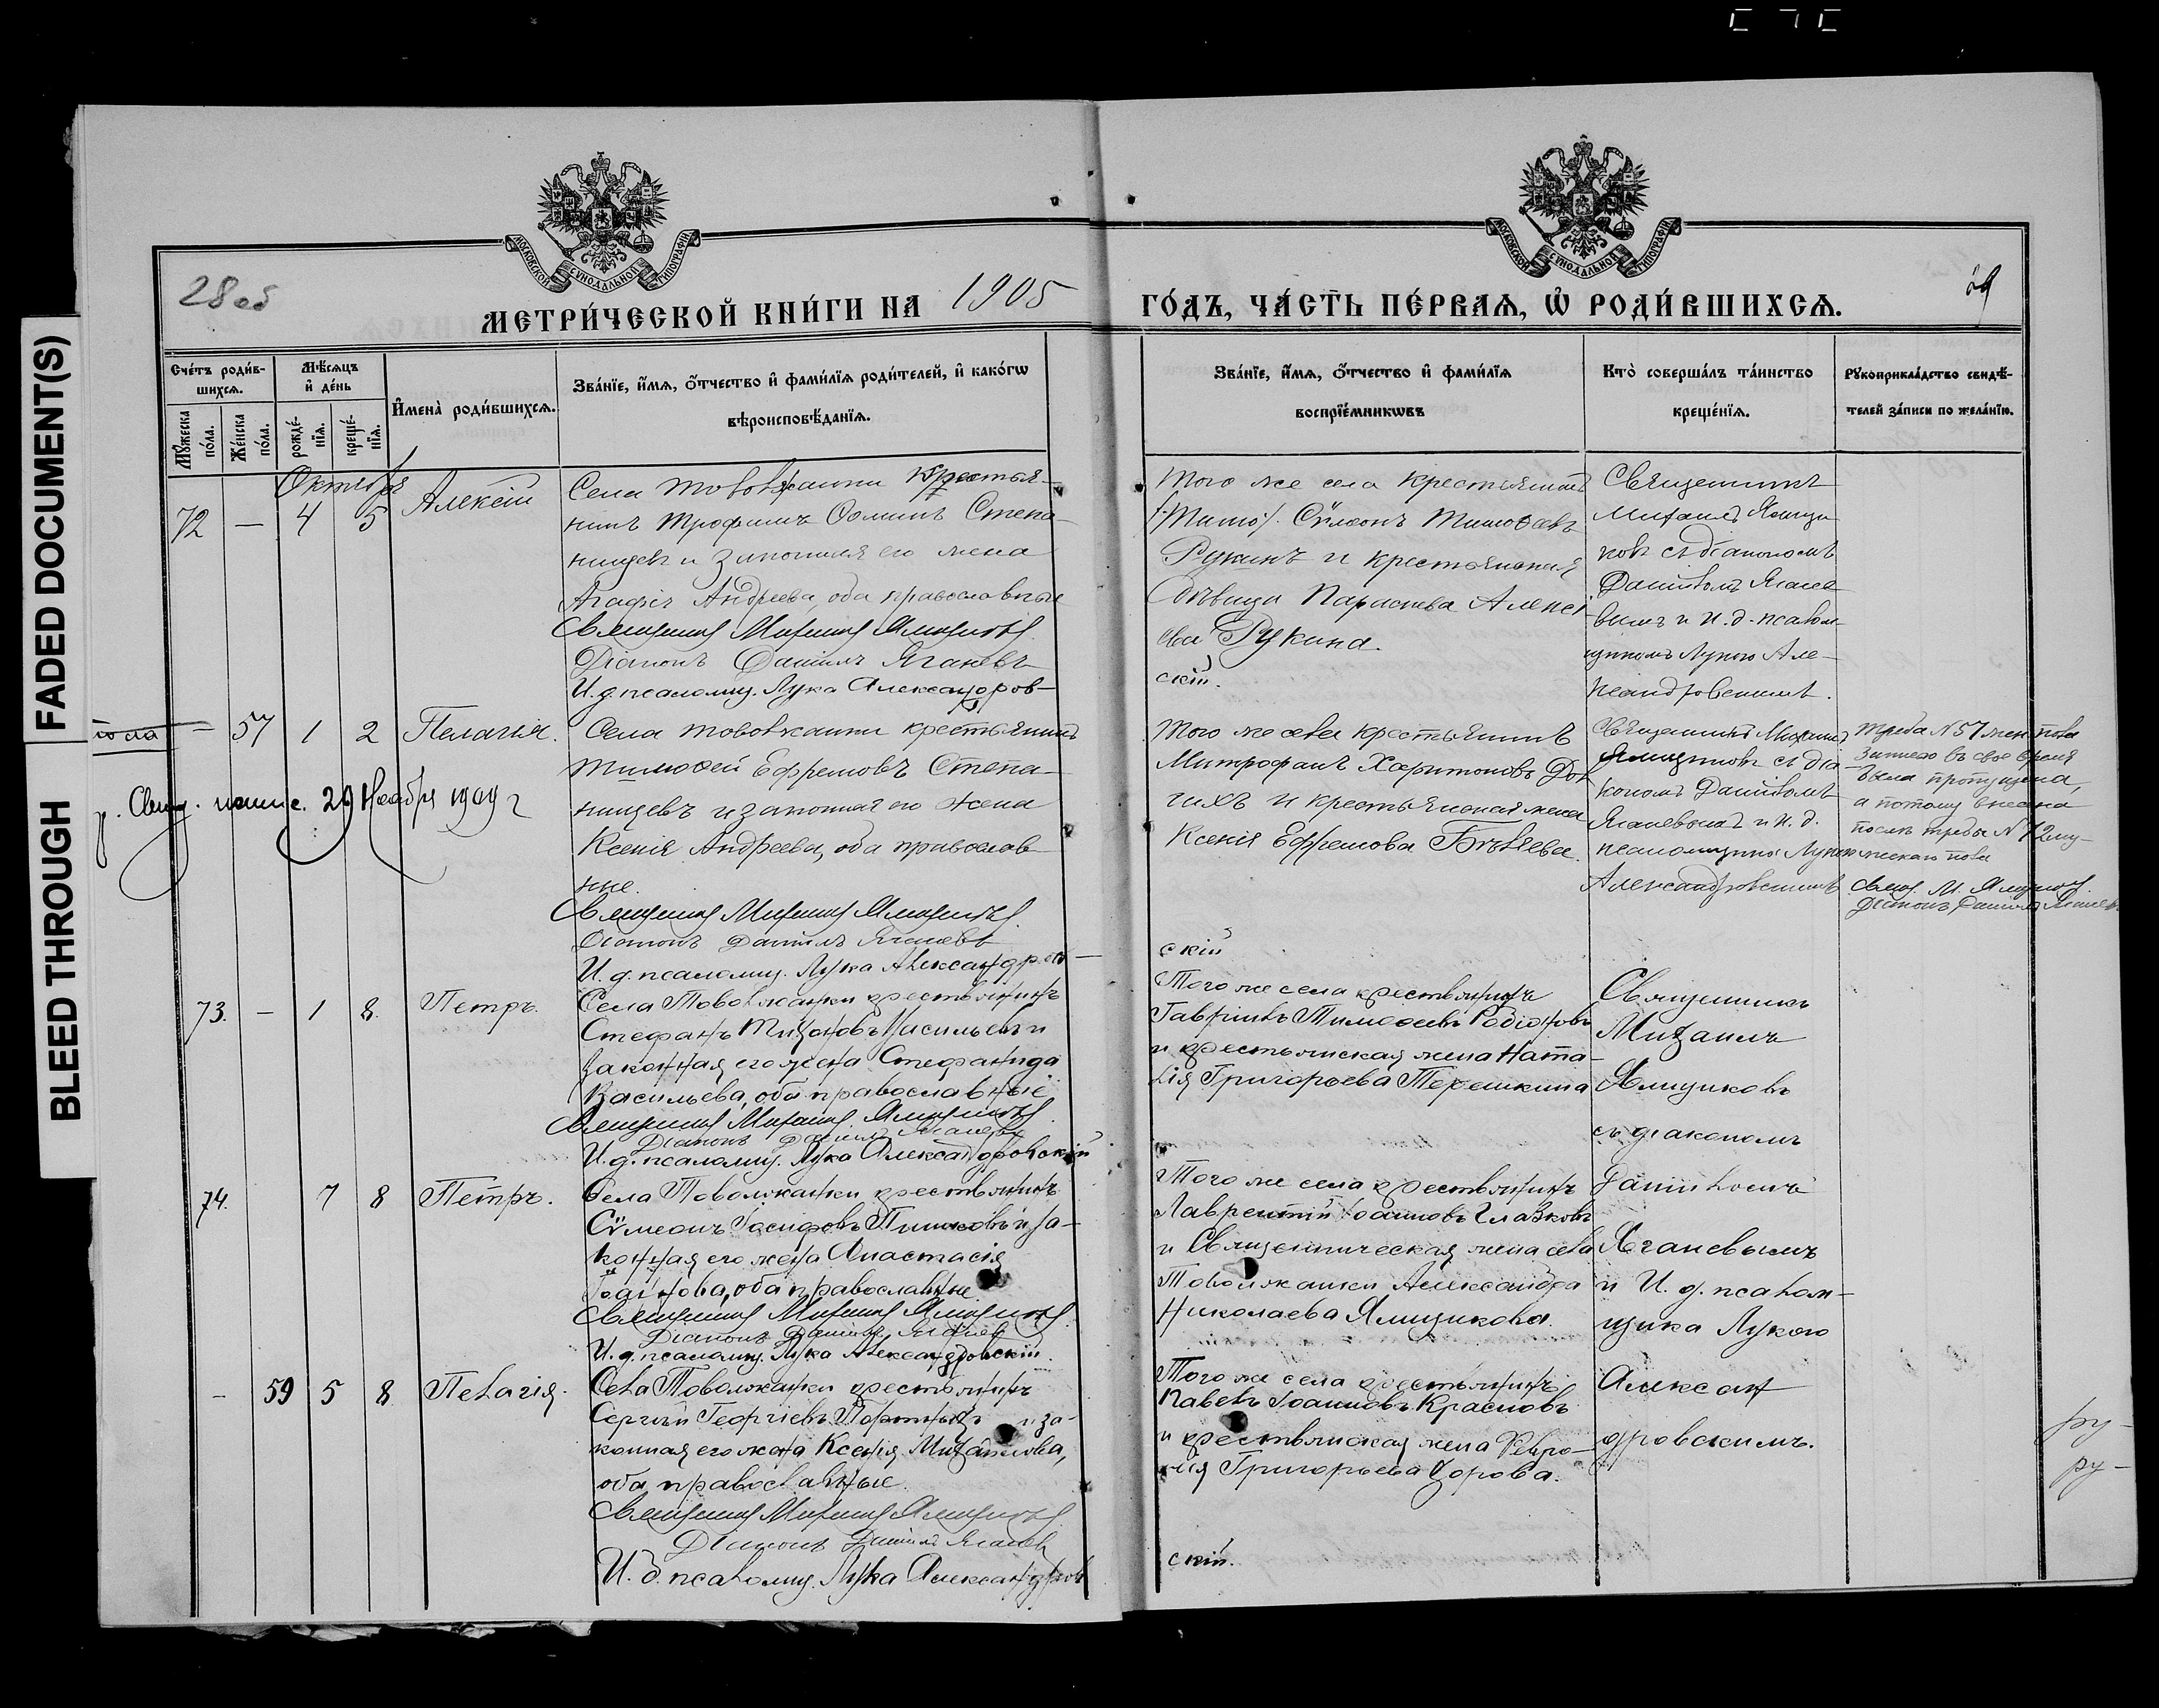 FADED DOCUMENT(S)
BLEED THROUGH
МОСКОВСКОЙ СѴНОДАЛЬНОЙ ТИПОГРАФІИ
МОСКОВСКОЙ СѴНОДАЛЬНОЙ ТИПОГРАФІИ
28 об
МЕТРИ́ЧЕСКОЙ КНИ́ГИ НА 1905
ГО́ДЪ, ЧА́СТЬ ПЕ́РВАѦ, Ѡ҆ РОДИ́ВШИХСѦ.
69
Сче́тъ роди́в-
шихсѧ.
Мѣ́сѧцъ
и҆ де́нь
Мꙋ́жеска
по́ла.
Же́нска
по́ла.
рожде́-
нїѧ.
креще́-
нїѧ.
И҆мена̀ роди́вшихсѧ.
Зва́нїе, и҆́мѧ, ѻ҆́тчество и҆ фами́лїѧ роди́телей, и҆ како́гѡ
вѣроисповѣ́данїѧ.
Зва́нїе, и҆́мѧ, ѻ҆́тчество и҆ фами́лїѧ
воспрїе́мникѡвъ
Кто̀ соверша́лъ та́инство
креще́нїѧ.
Рꙋкоприкла́дство свидѣ́-
телей за́писи по жела́нїю.
Октября
72 — 4 5 Алексій
Села Товолжанки крестья-
нинъ Трофимъ Ѳоминъ Степа-
нищевъ и законная его жена
Агафія Андреева, оба православные
Священникъ Михаилъ Ямщиковъ
Діаконъ Даніилъ Яганевъ
И. д. псаломщ. Лука Александров-
Того же села крестьянинъ
Сѵмеонъ Тимоѳеевъ
Рукинъ и крестьянская
дѣвица Параскева Алексѣ
ева Рукина.
скій.
Священникъ
Михаилъ Ямщи
ковъ съ діакономъ
Даніиломъ Ягане
вымъ и И. д. псалом-
щикомъ Лукою Але-
ксандровскимъ.
пола — 57 1 2 Пелагія.
Свид. 29 Ноября 1909 г
Села Товолжанки крестьянинъ
Тимоѳей Ефремовъ Степа-
нищевъ и законная его жена
Ксенія Андреева, оба православ
ные.
Священникъ Михаилъ Ямщиковъ
Діаконъ Даніилъ Яганевъ
И. д. псаломщ. Лука Александров-
Того же села крестьянинъ
Митрофанъ Харитоновъ Дол
гихъ и крестьянская жена
Ксенія Ефремова Бѣляева.
скій
Священникъ Михаилъ
Ямщиковъ съ діа
кономъ Даніиломъ
Яганевымъ и И. д.
псаломщика Лукою
Александровскимъ
Треба N 57 жен. пола
въ свое время
была пропущена,
а потому внесена
послѣ требы N 72 му-
жескаго пола
Свящ. М. Ямщиковъ.
Діаконъ Даніилъ Яганевъ
73. — 1 8. Петръ.
Села Товолжанки крестьянинъ
Стефанъ Тихоновъ Васильевъ и
законная его жена Стефанида
Васильева, оба православные
Священникъ Михаилъ Ямщиковъ
Діаконъ Даніилъ Яганевъ
И. д. псаломщ. Лука Александровскій
Того же села крестьянинъ
Гавріилъ Тимоѳеевъ Родіоновъ
и крестьянская жена Ната-
лія Григорьева Терешкина
Священникъ
Михаилъ
Ямщиковъ
съ діакономъ
74. 7 8 Петръ.
Села Товолжанки крестьянинъ
Сѵмеонъ Іосифовъ и за-
конная его жена Анастасія
Іоаннова, оба православные
Священникъ Михаилъ Ямщиковъ
Діаконъ Даніилъ Яганевъ
И. д. псаломщ. Лука Александровскій
Того же села крестьянинъ
Лаврентій Іоанновъ Глазковъ
и Священническая жена села
Товолжанки Александра
Николаева Ямщикова.
Даніиломъ
Яганевымъ
и И. д. псалом-
щика Лукою
— 59 5 8 Пелагія.
Села Товолжанки крестьянинъ
Сергѣй Георгіевъ и за-
конная его жена Ксенія Михаилова,
оба православные.
Священникъ Михаилъ Ямщиковъ
Діаконъ Даніилъ Яганевъ
И. д. псаломщ. Лука Александров
Того же села крестьянинъ
Павелъ Іоанновъ Красновъ
и крестьянская жена Февро-
нія Григорьева
скій.
Александ
дровскимъ.
ру-
ру-